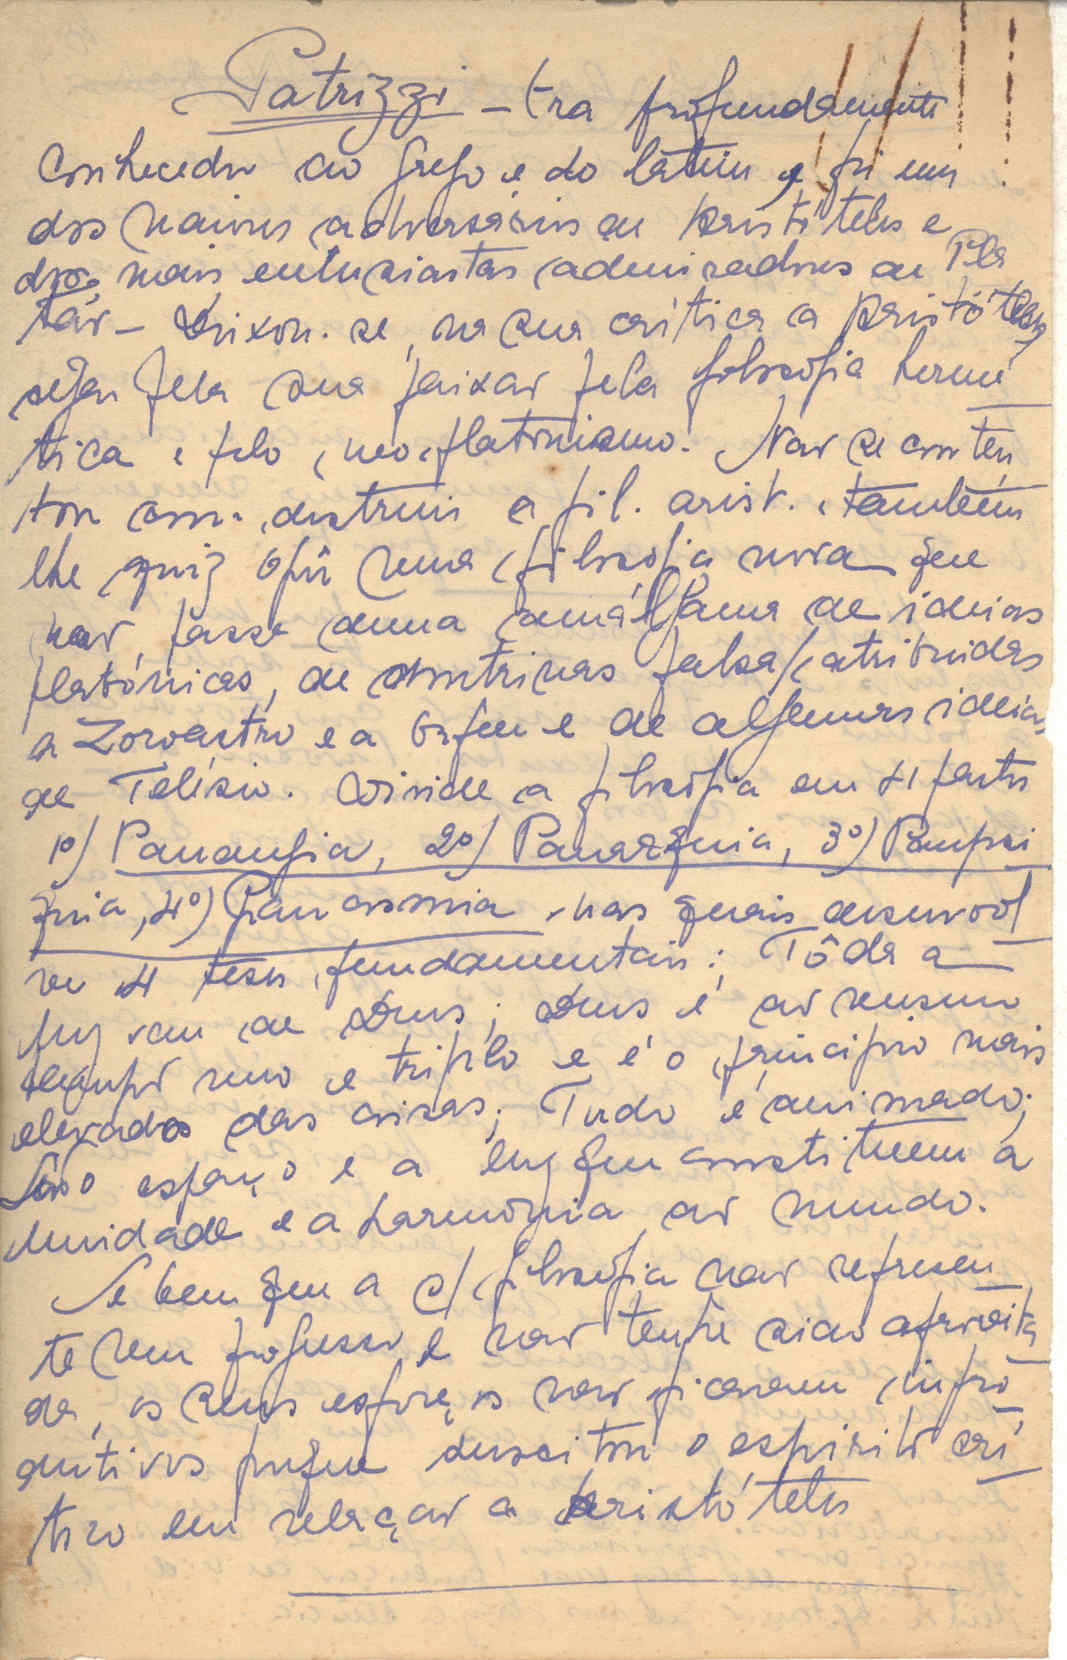 Patrizzi - Era profundamente
conhecedor do grego e do latim e foi um
dos maiores adversários de Aristóteles e
dos mais entusiastas admiradores de Pla
tão - Deixou-se, na sua crítica a Aristóteles,
cegar pela sua paixão pela filosofia hermé
tica e pelo neo-platonismo. Não se conten
tou com destruir a fil. arist. também
lhe quiz opôr uma filosofia nova que
não passa duma amálgama de ideias
platónicas, de doutrinas falsas/ atribuidas
a Zoroastro e a Orfeu e de algumas ideias
de Telésio. Divide a filosofia em 4 partes
1º) Panaugia, 2º) Panarquia, 3º) Pampsi
quia, 4º) Pancosmia nas quais desenvol
ve 4 teses fundamentais: Tôda a
luz vem de Deus; Deus é ao mesmo
tempo uno e triplo e é o principio mais
elevado das coisas; Tudo é animado;
São o espaço e a luz que constituem a
unidade e a harmonia do mundo.
Se bem que a s/ filosofia não represen
te um progresso e não tenha sido aproveita
da, os seus esforços não ficaram impro
dutivos porque suscitou o espirito crí
tico em relação a Aristóteles